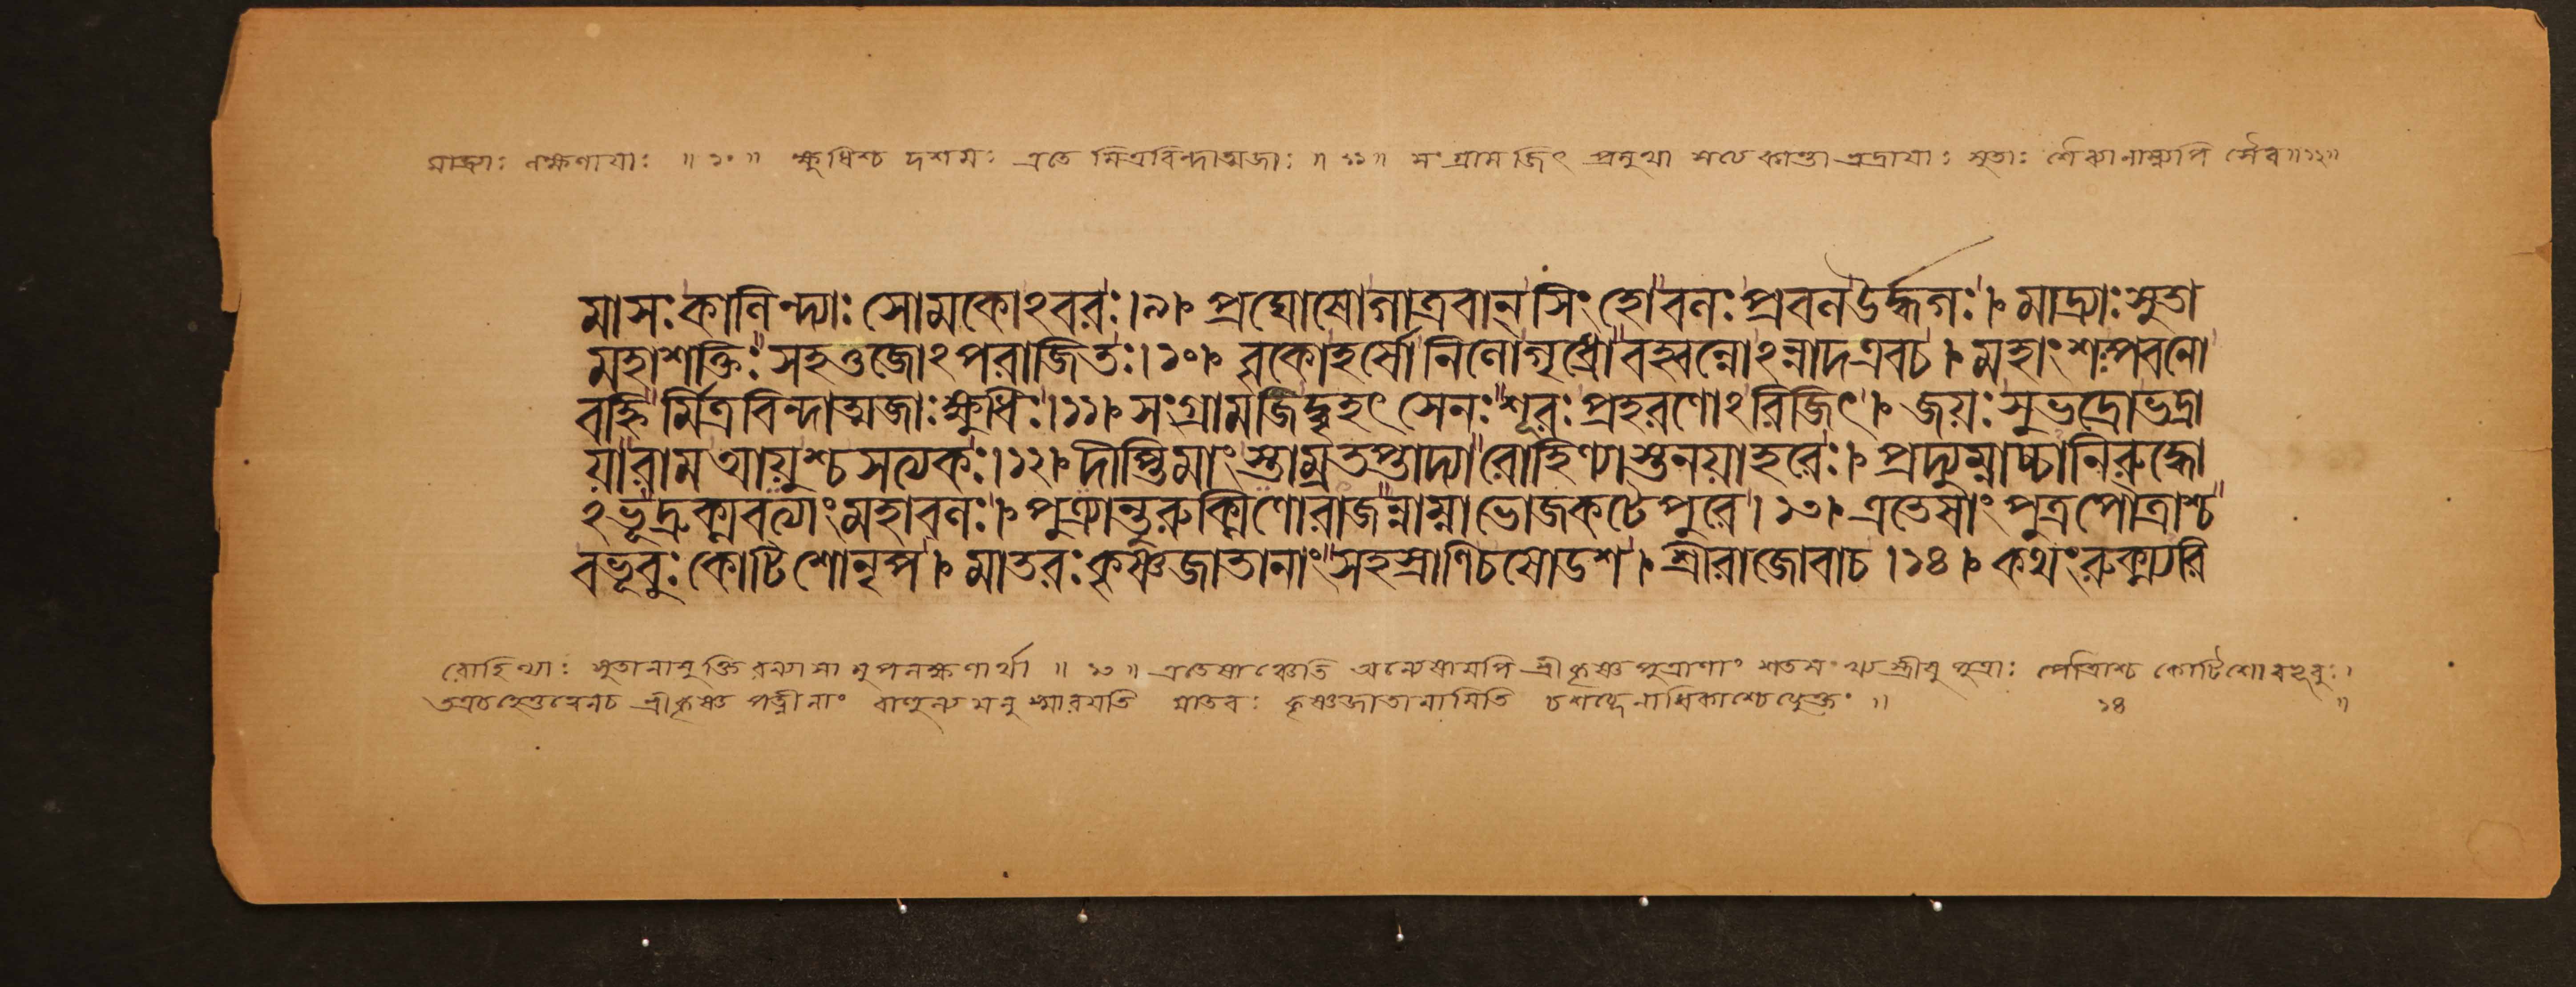 মাদ্র্যাঃ লক্ষণায়াঃ ॥ ১০ ॥ ক্ষুধিশ্চ দশমঃ এতে মিত্রবিন্দাত্মজাঃ ॥ ১১ ॥ সংগ্রামজিৎ প্রমুখা ভদ্রায়াঃ সুতাঃ ॥১২॥
মাসঃ কালিন্দ্যাঃ সোমকোঽবরঃ।৯। প্রঘোষোগাত্রবান্ সিংহোবলঃ প্রবলঊর্দ্ধগঃ। মাদ্র্যাঃ সুতা
মহাশক্তিঃ সহওজোঽপরাজিতঃ।১০। বৃকোহর্ষো নিলোগৃধ্রো বহ্বন্নোঽন্নাদএবচ। মহাংশঃপবনো
বহ্নি র্মিত্রবিন্দাত্মজাঃ ক্ষুধিঃ।১১। সংগ্রামজিদ্বৃহৎ সেনঃ শূরঃ প্রহরণোঽরিজিৎ। জয়ঃ সুভদ্রোভদ্রা
য়ারাম আয়ুশ্চ সত্যকঃ।১২। দীপ্তিমাংস্তাম্রতপ্তাদ্যা রোহিণ্যাস্তনয়াহরেঃ। প্রদ্যুম্নাচ্চানিরুদ্ধো
ঽভূদ্রুক্মবত্যাংমহাবলঃ। পুত্র্যান্তুরুক্মিণোরাজন্নাম্নাভোজকটেপুরে। ১৩। এতেষাং পুত্রপৌত্রাশ্চ
বভূবুঃ কোটিশোনৃপ। মাতরঃ কৃষ্ণজাতানাং সহস্রাণিচষোডশ। শ্রীরাজোবাচ।১৪। কথং রুক্ম্যরি
রোহিণ্যাঃ সুতানামুক্তি রন্যাসামুপলক্ষণার্থা ॥ ১৩ ॥ এতেষাঞ্চেতি অন্যেষামপি শ্রীকৃষ্ণ পুত্রাণাং পুত্রাঃ পৌত্রাশ্চ কোটিশোবভূবুঃ।
শ্রীকৃষ্ণ পত্নীনাং বাহুল্য মনুস্মারয়তি মাতরঃ কৃষ্ণজাতানামিতি চশব্দেনাধিকাশ্চেত্যুক্তং ॥ ১৪ ॥